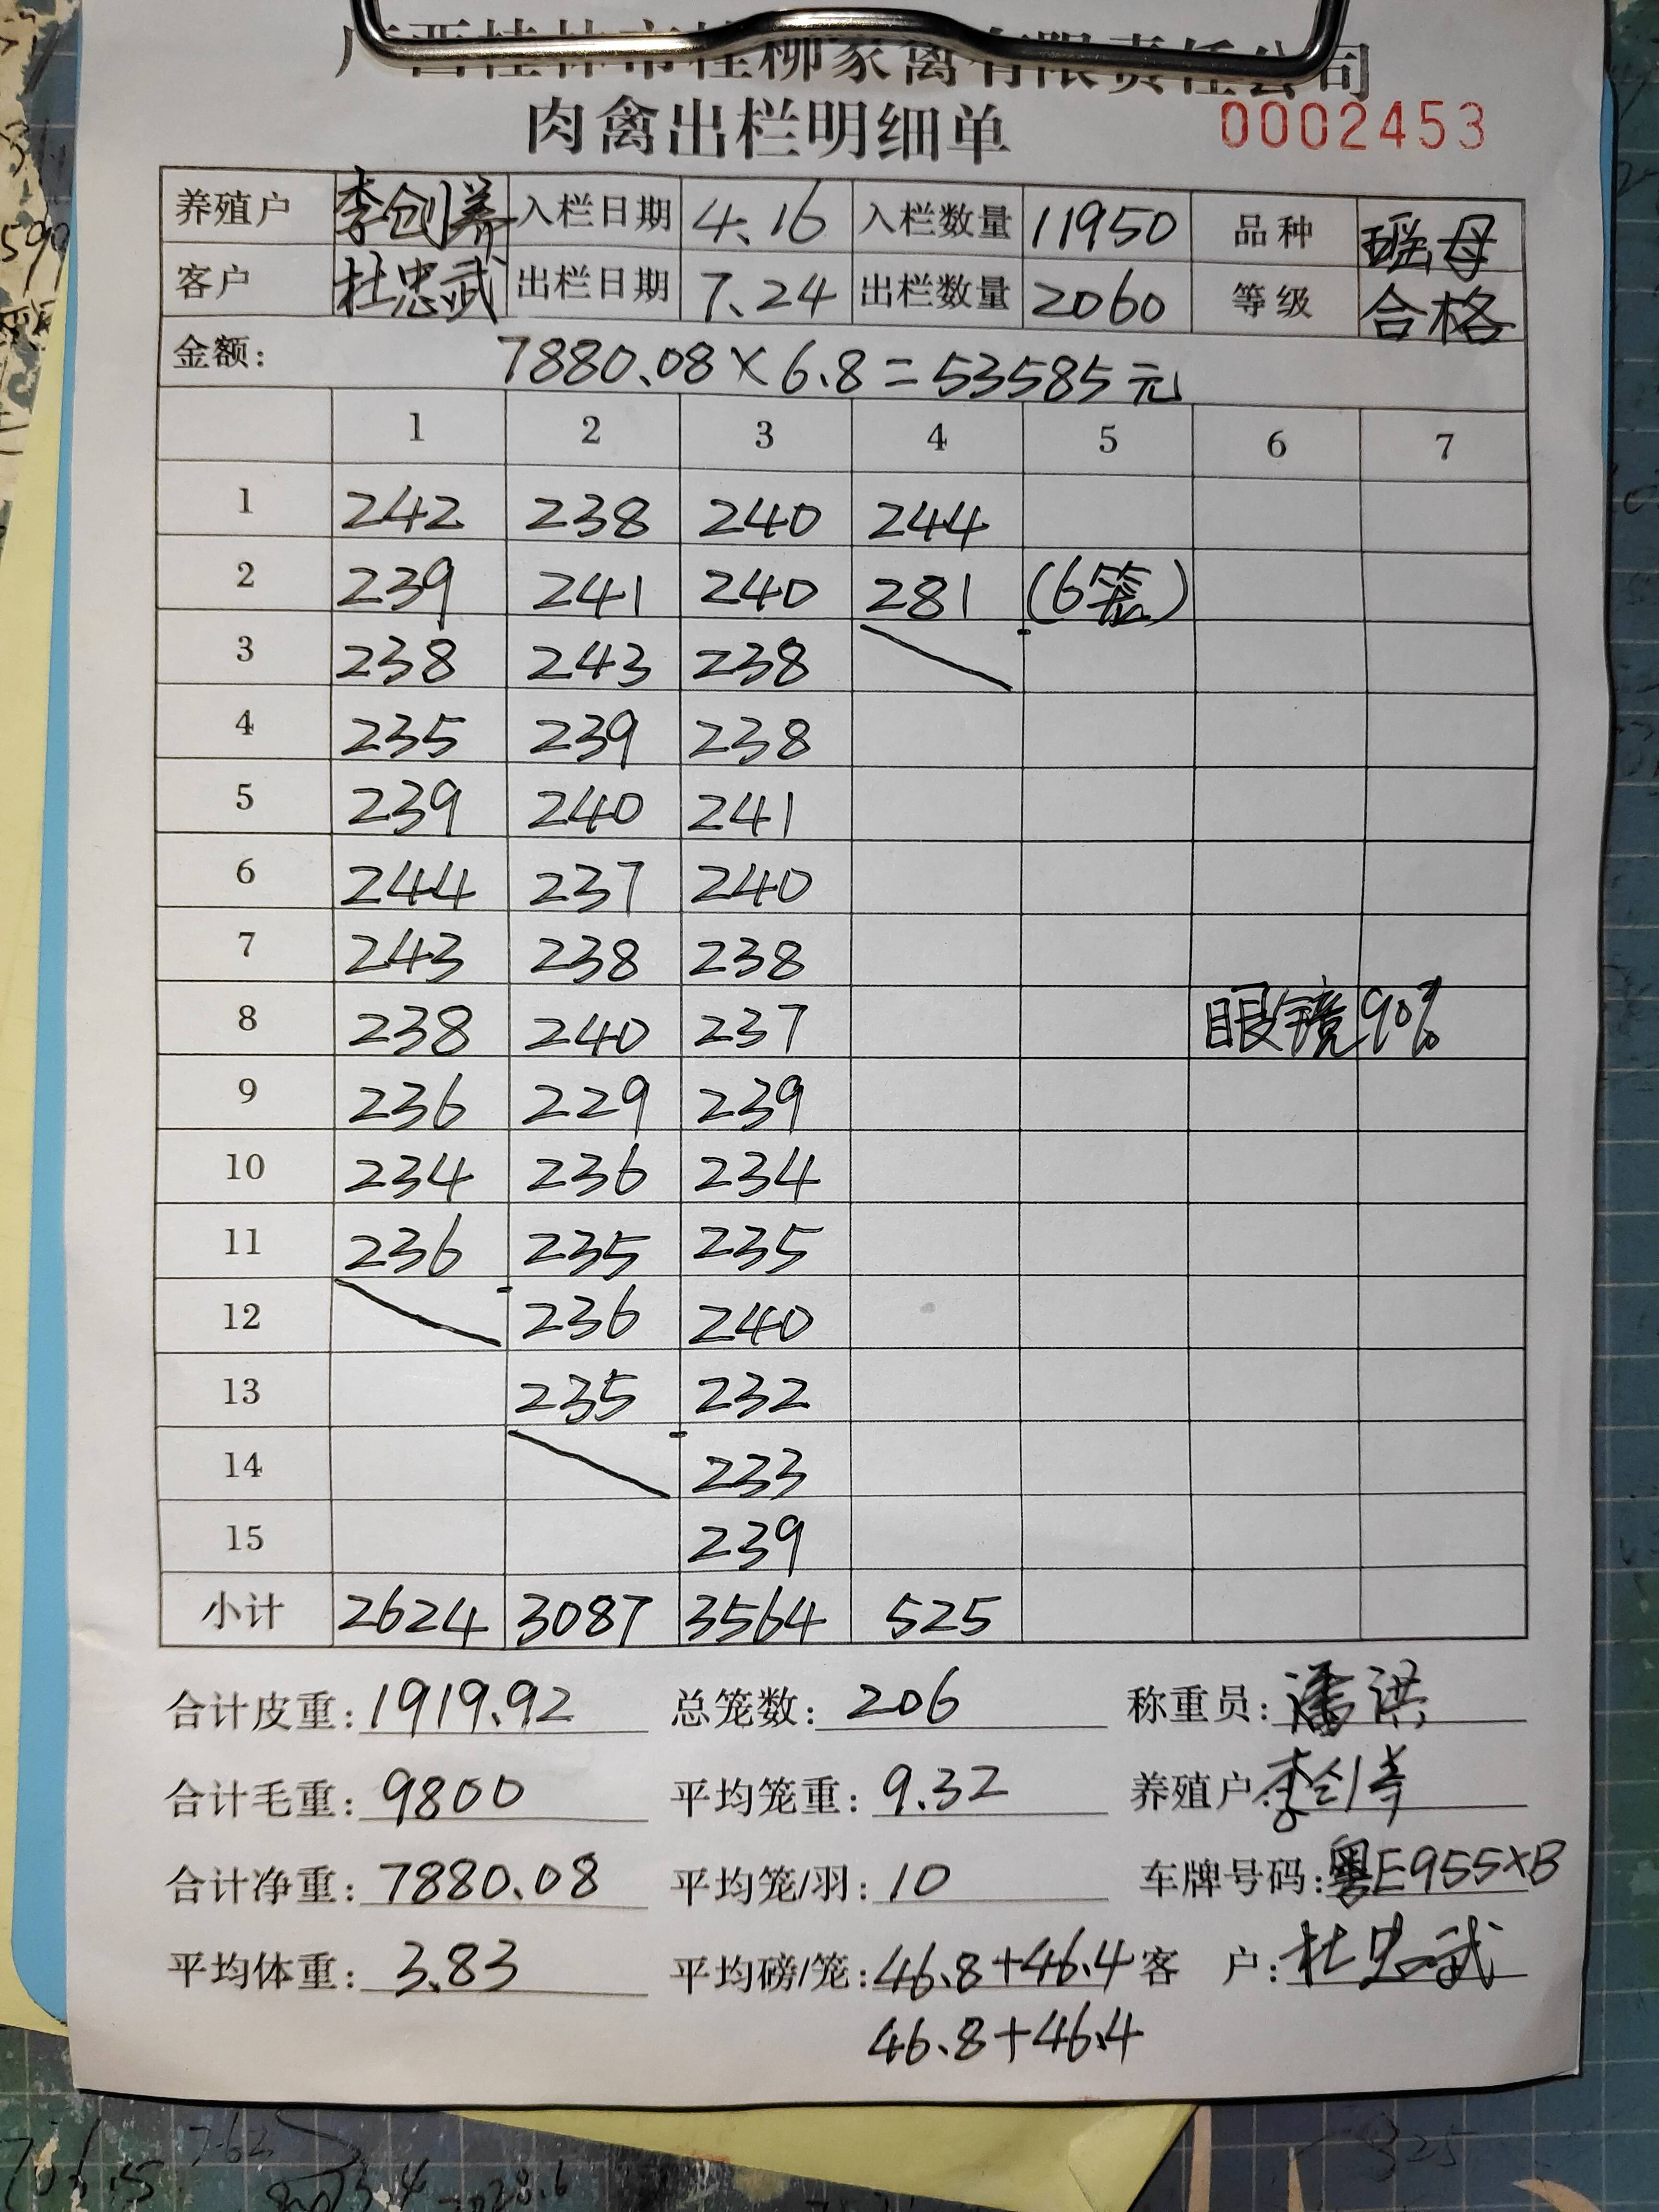 广西桂林市桂柳家禽有限责任公司
肉禽出栏明细单 0002453
养殖户 李创养 入栏日期 4.16 入栏数量 11950 品种 瑶母
客户 杜忠武 出栏日期 7.24 出栏数量 2060 等级 合格
金额: 7880.08×6.8=53585元
1 2 3 4 5 6 7
1 242 238 240 244
2 239 241 240 281 (6笼)
3 238 243 238
4 235 239 238
5 239 240 241
6 244 237 240
7 243 238 238
8 238 240 237 眼镜90%
9 236 229 239
10 234 236 234
11 236 235 235
12 236 240
13 235 232
14 233
15 239
小计 2624 3087 3564 525
合计皮重: 1919.92 总笼数: 206 称重员: 潘洪
合计毛重: 9800 平均笼重: 9.32 养殖户: 李创养
合计净重: 7880.08 平均笼/羽: 10 车牌号码: 粤E955XB
平均体重: 3.83 平均磅/笼: 46.8+46.4 客户: 杜忠武
46.8+46.4